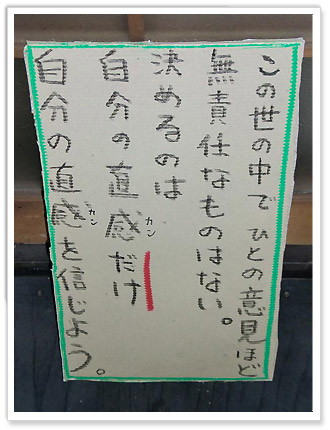 この世の中でひとの意見ほど
無責任なものはない。
決めるのは
自分の直感カンだけ
自分の直感カンを信じよう。